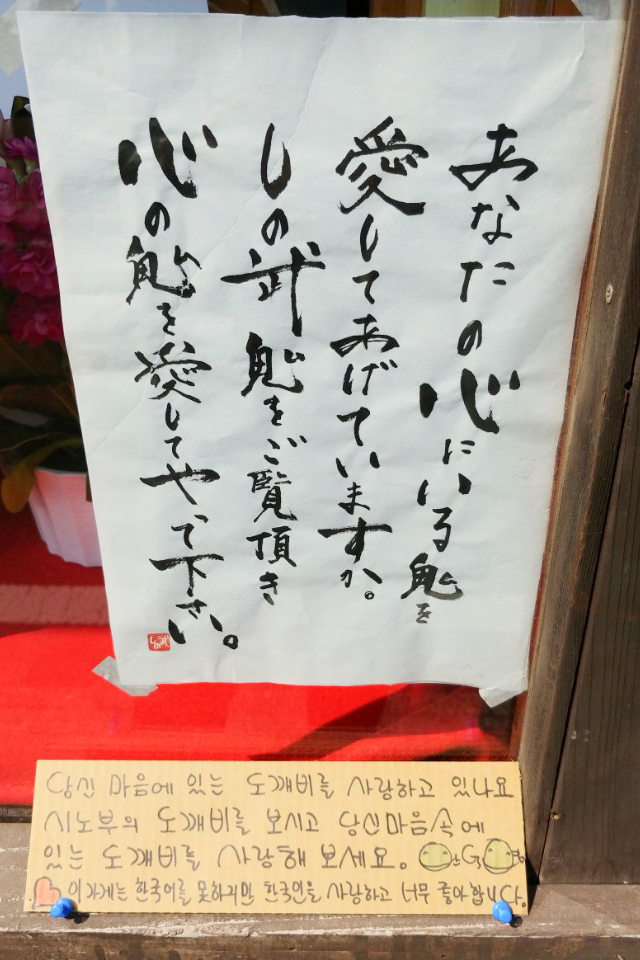 あなたの心にいる鬼を
愛してあげていますか。
しの武鬼をご覧頂き
心の鬼を愛してやって下さい。
당신 마음에 있는 도깨비를 사랑하고 있나요
시노부의 도깨비를 보시고 당신마음속에
있는 도깨비를 사랑해 보세요.
이가게는 한국어를 못하지만 한국인을 사랑하고 너무 좋아합니다.